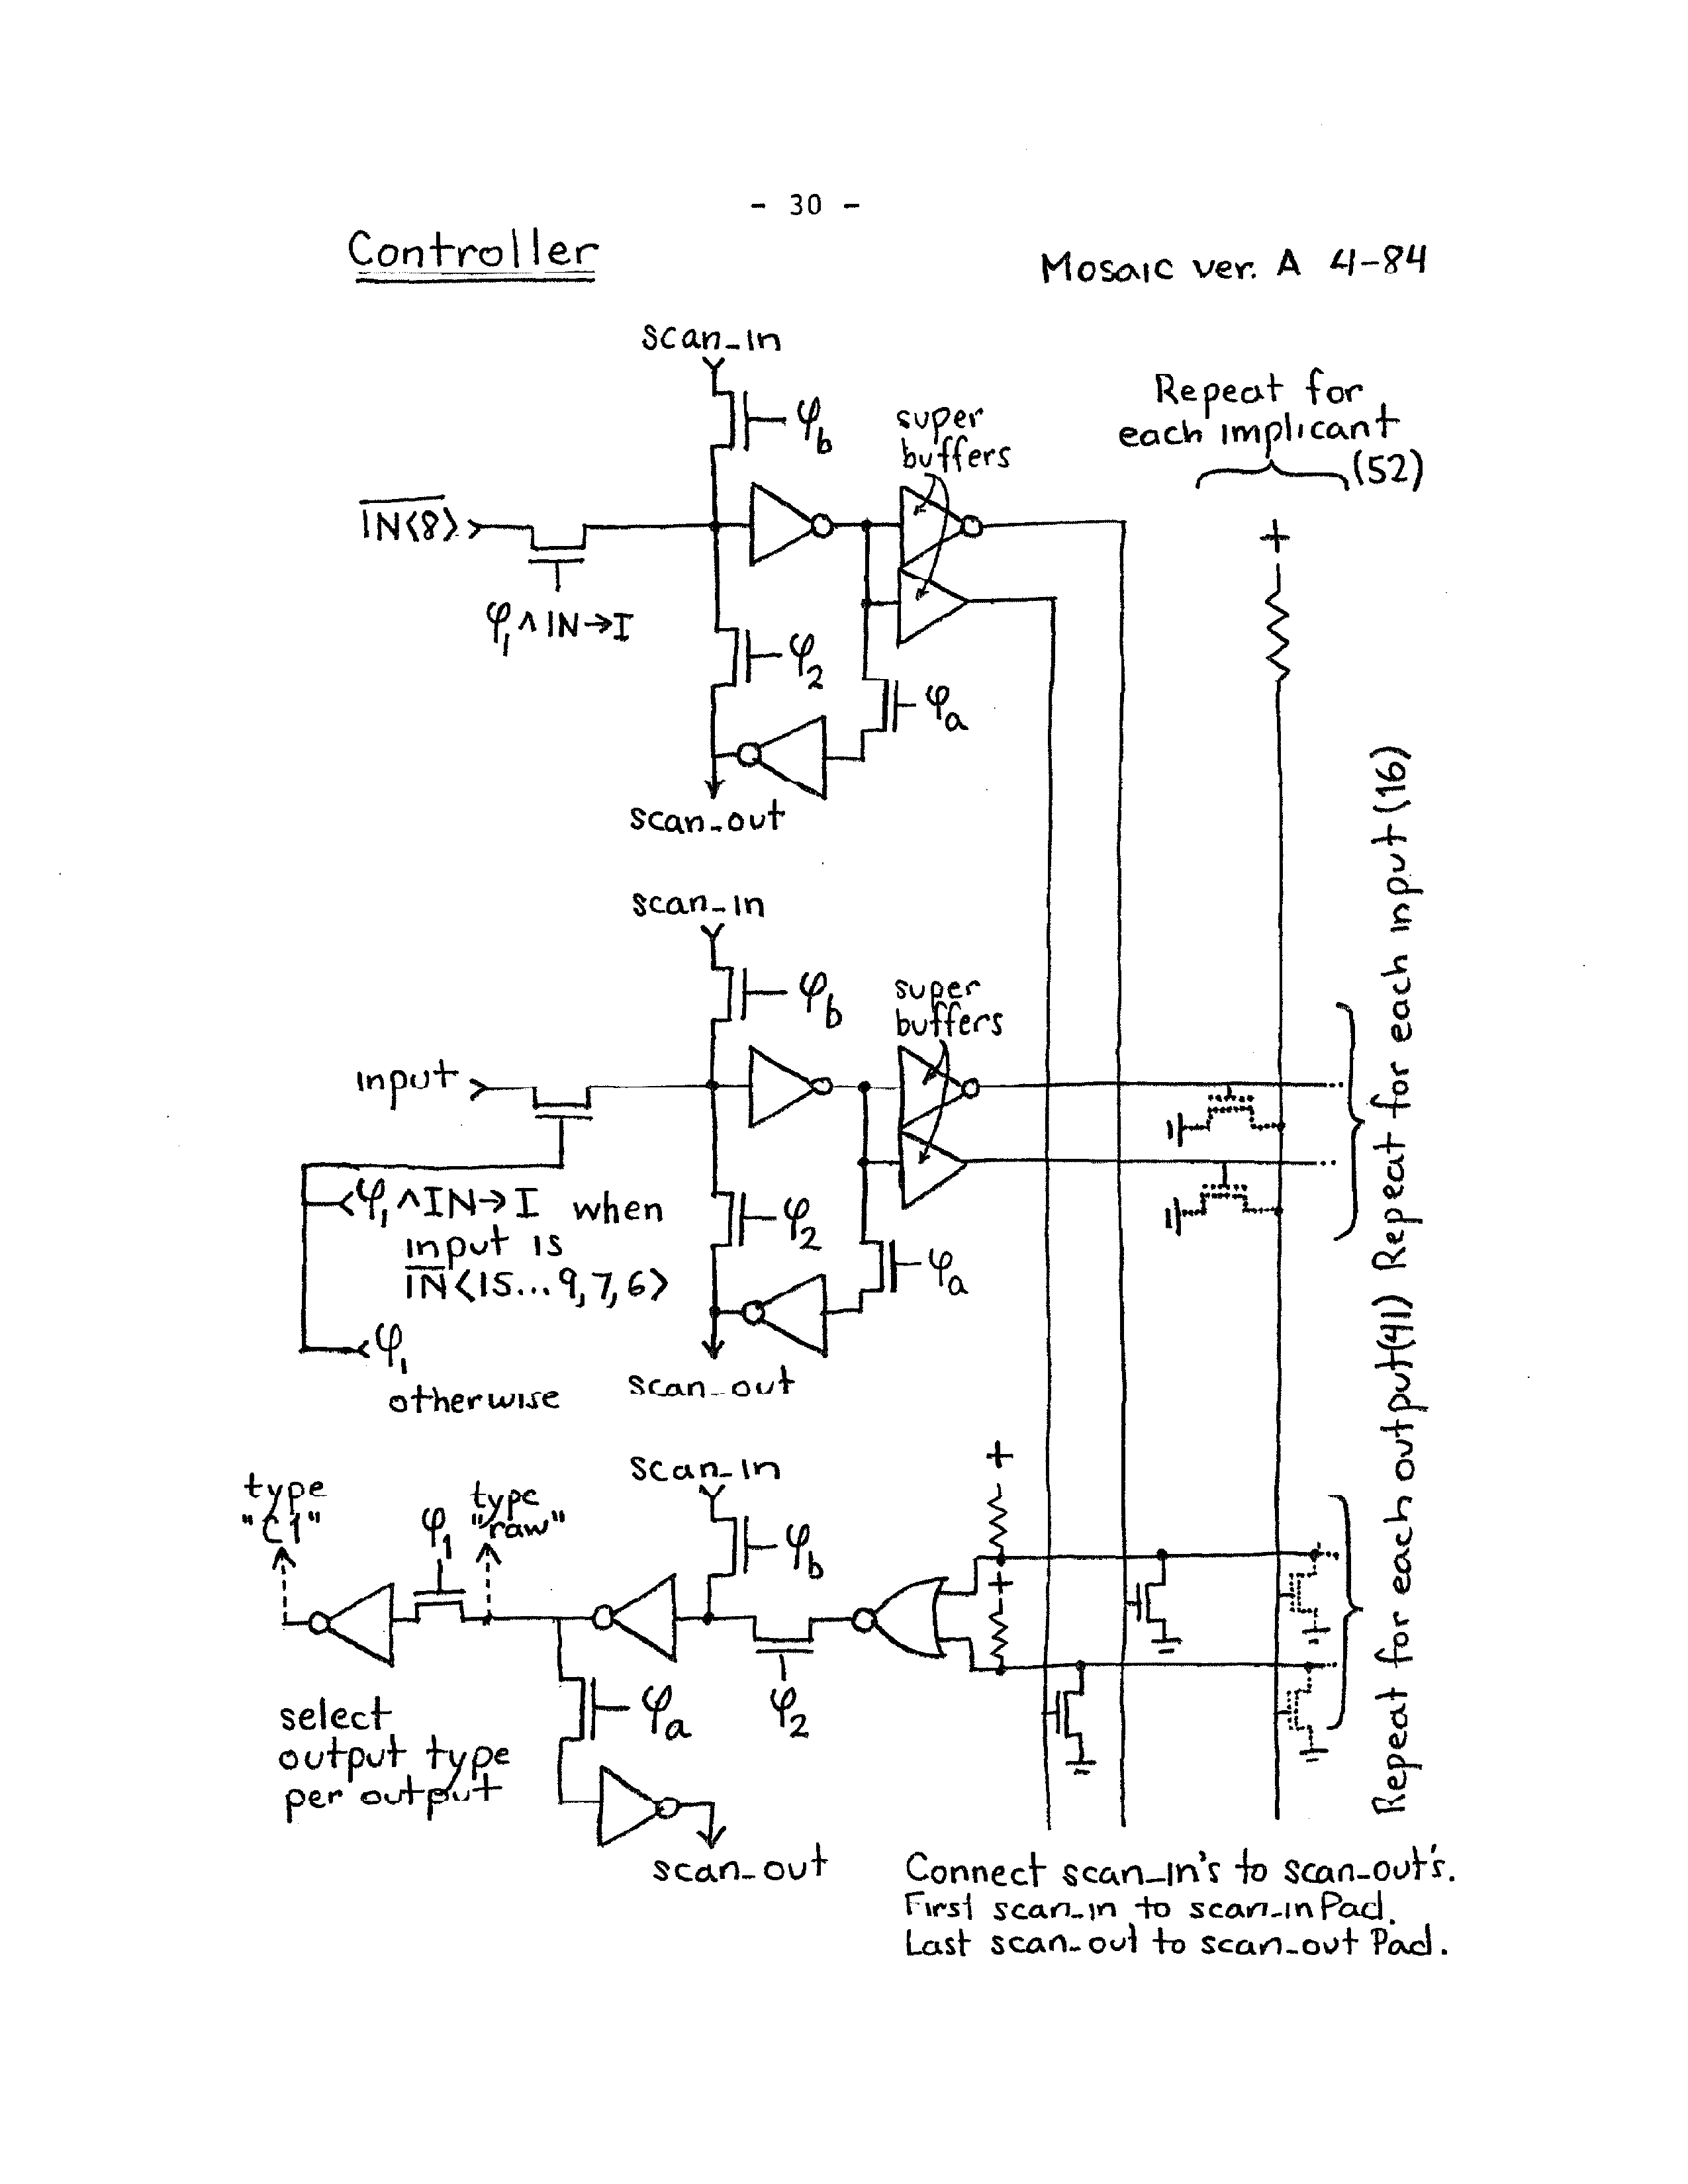 - 30 -
Controller
Mosaic ver. A 4-84
scan_in
φb
super
buffers
Repeat for
each implicant
(52)
+
I̅N̅⟨8⟩
φ1 ∧ IN→I
φ2
φa
scan_out
scan_in
φb
super
buffers
input
φ1 ∧ IN→I when
input is
I̅N̅⟨15...9,7,6⟩
φ1
otherwise
φ2
φa
scan_out
Repeat for each input (16)
type
"C1"
φ1
type
"raw"
scan_in
φb
+
+
φa
φ2
select
output type
per output
scan_out
Repeat for each output (41)
Connect scan_in's to scan_out's.
First scan_in to scan_in Pad.
Last scan_out to scan_out Pad.